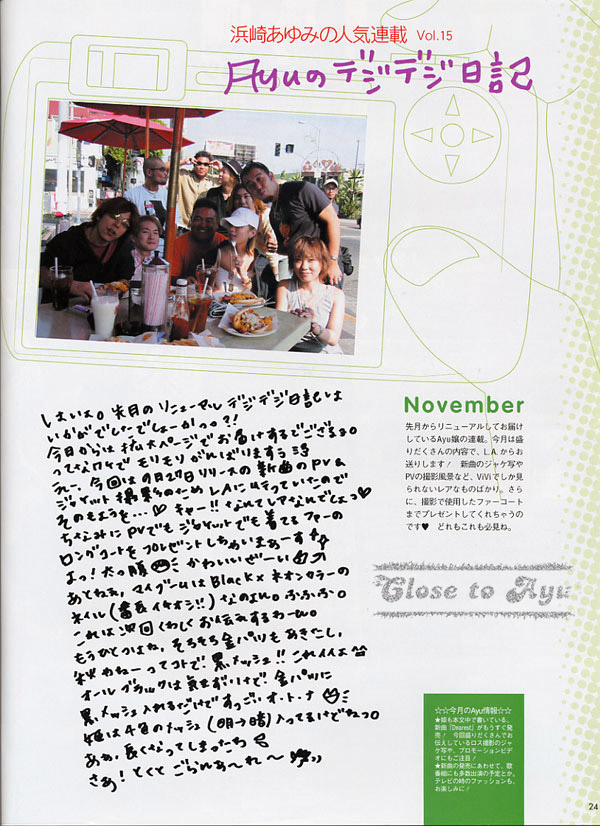 浜崎あゆみの人気連載 Vol.15
Ayuのデジデジ日記
はいは。先月のリニューアルデジデジ日記は
いかがでしたでしょーかっつ?!
今日からは拡大ページでお届けするでござるよ。
ってなワケでモリモリがんばりますぅ
えー、今回は9月27日リリースの新曲のPV&
ジャケット撮影のためLAに行っていたので
そのもようを…♥キャー!!なんてレアなんでしょっ♥
ちなみにPVでもジャケットでも着てるファーの
ロングコートをプレゼントしちゃいまあーす
よっ!太っ腹 かわいいぜーい
あとねぇ、マイブームはBlack×ネオンカラーの
ネイル(番長イチオシ!!)なのよん。ふふふ。
これは次回くわしくお伝えするわーん。
もうひとつはね、そろそろ金パツもあきたし、
秋だねーってコトで黒メッシュ!!これイイよ
オールブラックは気せずいけど金パツに
黒メッシュ入れるだけですっごいオ・ト・ナ
姫は4色のメッシュ(明→暗)入ってるけどねっ。
ああ、長くなってしまったち
さあ!とくとごらんあ〜れ〜
November
先月からリニューアルしてお届け
しているAyu嬢の連載。今月は盛
りだくさんの内容で、L.A.からお
送りします! 新曲のジャケ写や
PVの撮影風景など、ViViでしか見
られないレアなものばかり。さら
に、撮影で使用したファーコート
までプレゼントしてくれちゃうの
です♥ どれもこれも必見ね。
Close to Ayu
☆☆今月のAyu情報☆☆
★姫も本文中で書いている、
新曲「Dearest」がもうすぐ発
売! 今回盛りだくさんでお
伝えしているロス撮影のジャ
ケ写や、プロモーションビデ
オにもご注目!
★新曲の発売にあわせて、歌
番組にも多数出演の予定とか。
テレビの時のファッションも、
お楽しみに!
24